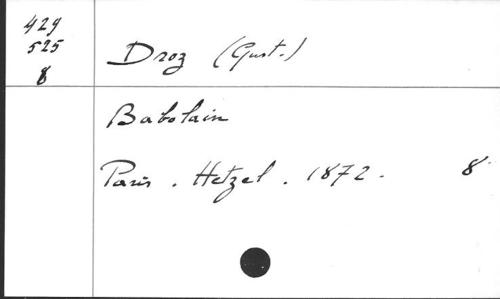 429
525
8
Droz (Gust.)
Babolain
Paris . Hetzel . 1872 . 8°